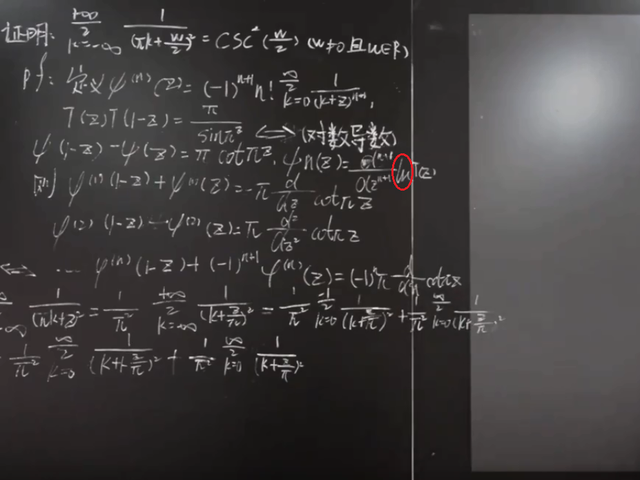 证明: \sum_{k=-\infty}^{+\infty} \frac{1}{(\pi k+\frac{w}{2})^2} = CSC^2(\frac{w}{2}) (w≠0且w∈R)
pf: 定义 ψ^{(n)}(z) = (-1)^{n+1} n! \sum_{k=0}^{\infty} \frac{1}{(k+z)^{n+1}},
Γ(z)Γ(1-z) = \frac{π}{sinπz} ⟺ (对数导数)
ψ(1-z) - ψ(z) = π cotπz. ψ^{n}(z) = \frac{d^{n+1}}{dz^{n+1}} ln Γ(z)
则 ψ^{(1)}(1-z) + ψ^{(1)}(z) = -π \frac{d}{dz} cotπz
ψ^{(2)}(1-z) - ψ^{(2)}(z) = π \frac{d^2}{dz^2} cotπz
⟺ ... ψ^{(n)}(1-z) + (-1)^{n+1} ψ^{(n)}(z) = (-1)^n π \frac{d}{dz^n} cotπz
\frac{1}{(πk+z)^2} = \frac{1}{π^2} \sum_{k=-\infty}^{+\infty} \frac{1}{(k+\frac{z}{π})^2} = \frac{1}{π^2} \sum_{k=0}^{-1} \frac{1}{(k+\frac{z}{π})^2} + \frac{1}{π^2} \sum_{k=0}^{\infty} \frac{1}{(k+\frac{z}{π})^2}
\frac{1}{π^2} \sum_{k=0}^{\infty} \frac{1}{(k+1-\frac{z}{π})^2} + \frac{1}{π^2} \sum_{k=0}^{\infty} \frac{1}{(k+\frac{z}{π})^2}